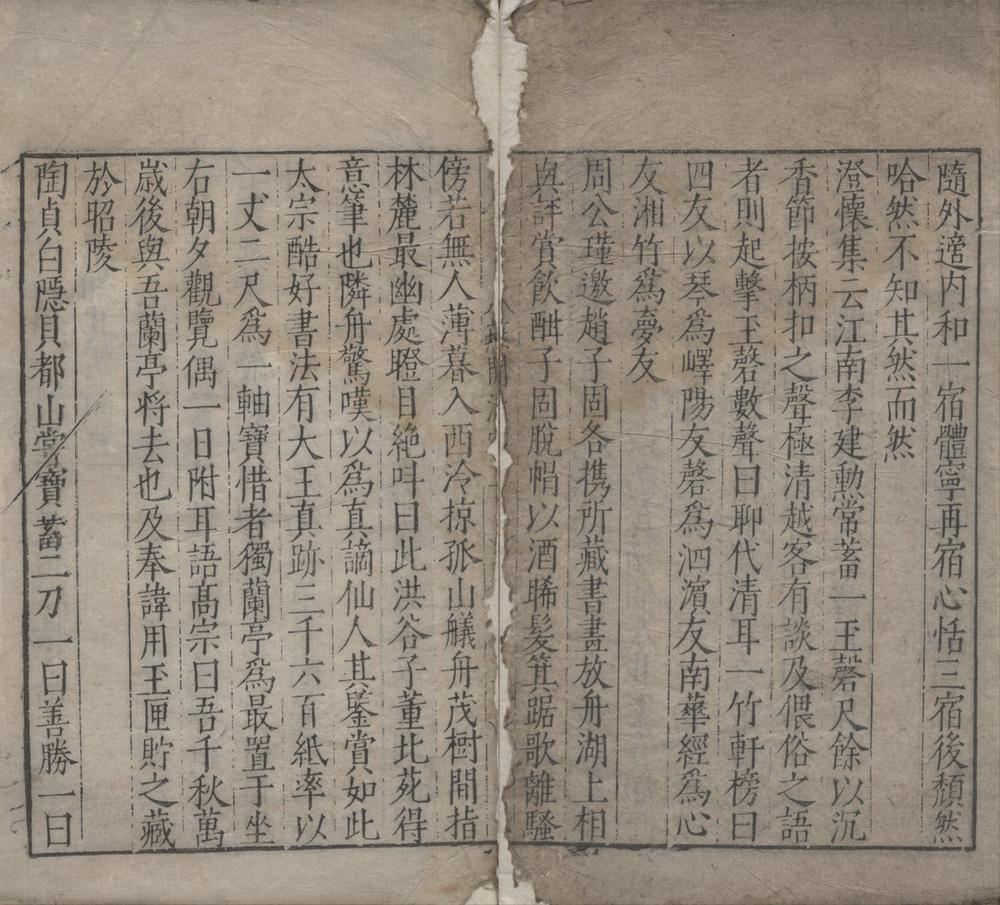 隨外適内和一宿體寧再宿心恬三宿後頹然
嗒然不知其然而然
澄懷集云江南李建勲常蓄一玉磬尺餘以沉
香節按柄扣之聲極清越客有談及偎俗之語
者則起擊玉磬數聲曰聊代清耳一竹軒榜曰
四友以琴爲嶧陽友磬爲泗濵友南華經爲心
友湘竹爲夢友
周公瑾邀趙子固各携所藏書畫放舟湖上相
與評賞飲酣子固脫帽以酒晞髮箕踞歌離騷
傍若無人薄暮入西泠掠孤山艤舟茂樹間指
林麓最幽處瞪目絶呌曰此洪谷子董北苑得
意筆也隣舟驚嘆以爲真謫仙人其鑒賞如此
太宗酷好書法有大王真跡三千六百紙率以
一丈二尺爲一軸寶惜者獨蘭亭爲最置于坐
右朝夕觀覽偶一日附耳語髙宗曰吾千秋萬
嵗後與吾蘭亭将去也及奉諱用玉匣貯之藏
於昭陵
陶貞白隱貝都山嘗寶蓄二刀一曰善勝一曰